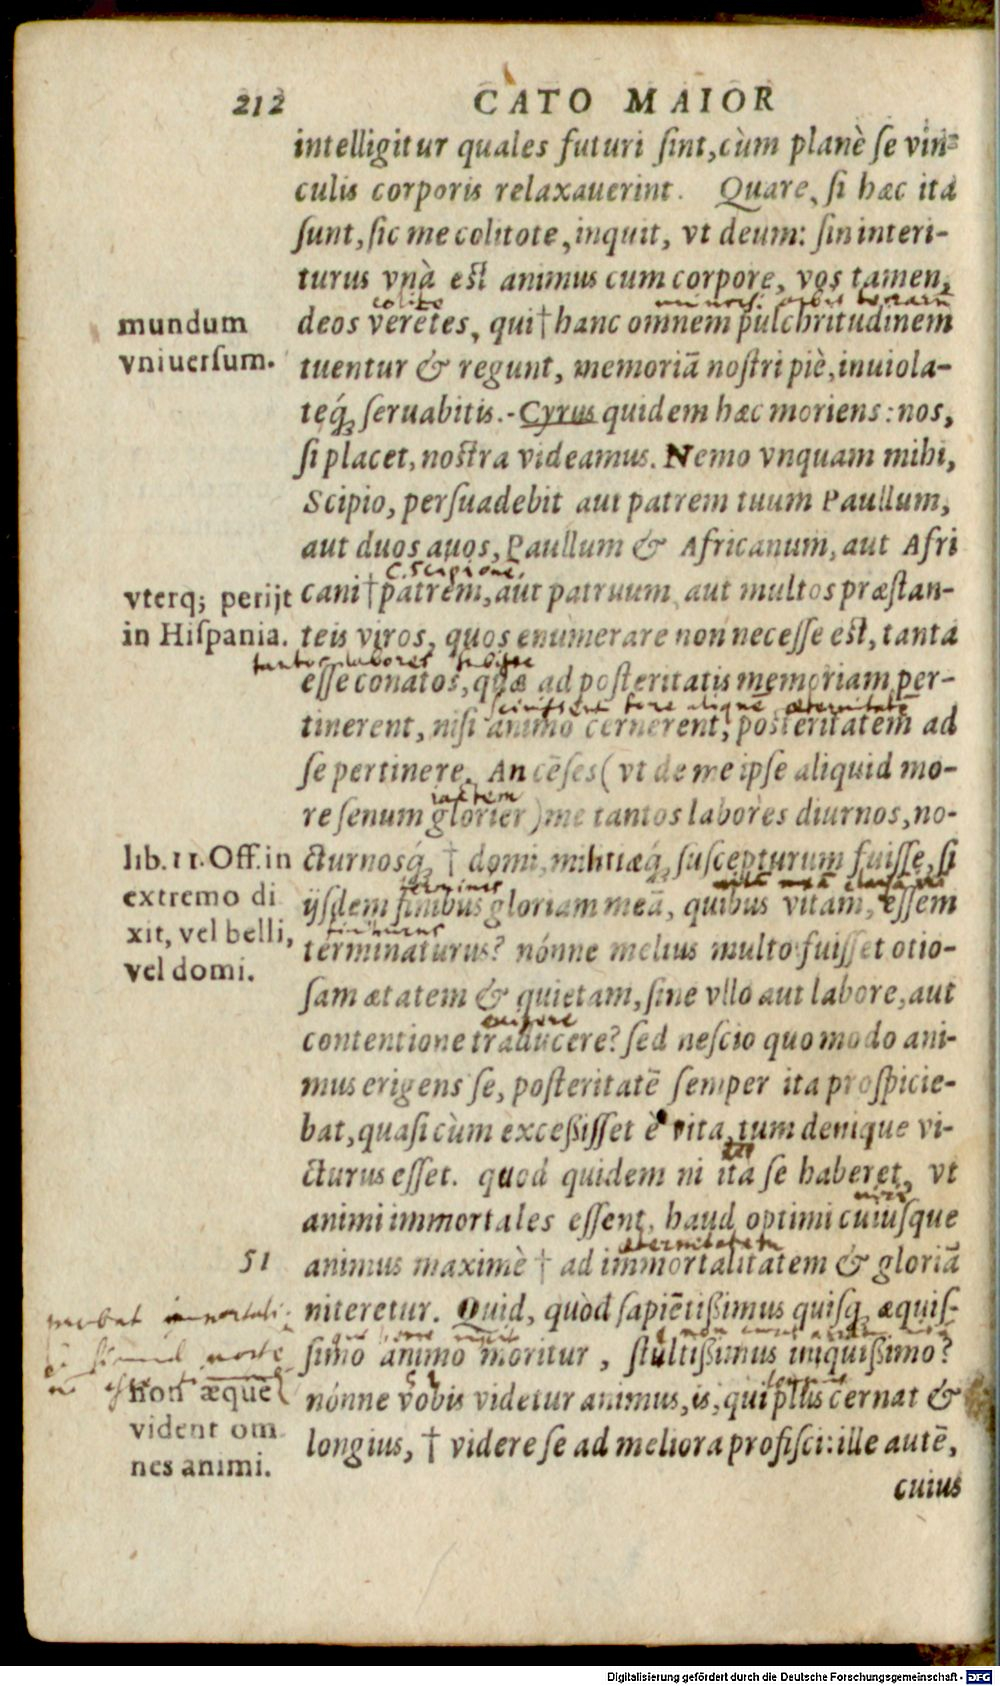 212
CATO MAIOR
intelligitur quales futuri sint, cùm planè se vin=
culis corporis relaxauerint. Quare, si hæc ita
sunt, sic me colitote, inquit, vt deum: sin interi-
turus vnà est animus cum corpore, vos tamen,
deos veretes, qui † hanc omnem pulchritudinem
mundum
vniuersum.
tuentur & regunt, memoriā nostri piè, inuiola-
teq́; seruabitis. - Cyrus quidem hæc moriens: nos,
si placet, nostra videamus. Nemo vnquam mihi,
Scipio, persuadebit aut patrem tuum Paullum,
aut duos auos, Paullum & Africanum, aut Afri
C. Scipionē.
cani † patrem, aut patruum aut multos præstan-
vterq; perijt
in Hispania.
teis viros, quos enumerare non necesse est, tanta
tantos labores subijsse
esse conatos, quæ ad posteritatis memoriam per-
tinerent, nisi animo cernerent, posteritatem ad
se pertinere. An cēses (vt de me ipse aliquid mo-
iactem
re senum glorier) me tantos labores diurnos, no-
cturnosq́; † domi, militiæq́; suscepturum fuisse, si
lib. 11. Off. in
extremo di
xit, vel belli,
vel domi.
ijsdem finibus gloriam meā, quibus vitam, essem
terminaturus? nónne melius multo fuisset otio-
sam ætatem & quietam, sine vllo aut labore, aut
contentione traducere? sed nescio quo modo ani-
mus erigens se, posteritatē semper ita prospicie-
bat, quasi cùm excessisset è vita, tum denique vi-
cturus esset. quod quidem ni ita se haberet, vt
animi immortales essent, haud optimi cuiusque
æternitatem
animus maximè † ad immortalitatem & gloriā
51
niteretur. Quid, quòd sapiētissimus quisq; æquis-
simo animo moritur, stultissimus iniquissimo?
nónne vobis videtur animus, is, qui plus cernat &
non æque
vident om
nes animi.
longius, † videre se ad meliora profisci: ille autē,
cuius
Digitalisierung gefördert durch die Deutsche Forschungsgemeinschaft - DFG